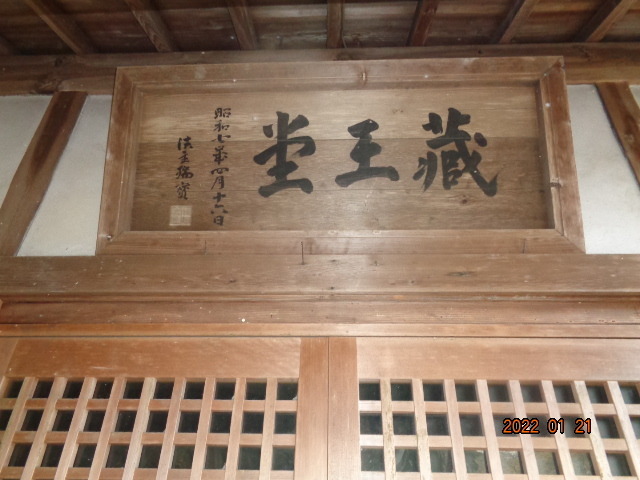 藏王堂
昭和七年四月十六日
2022 01 21